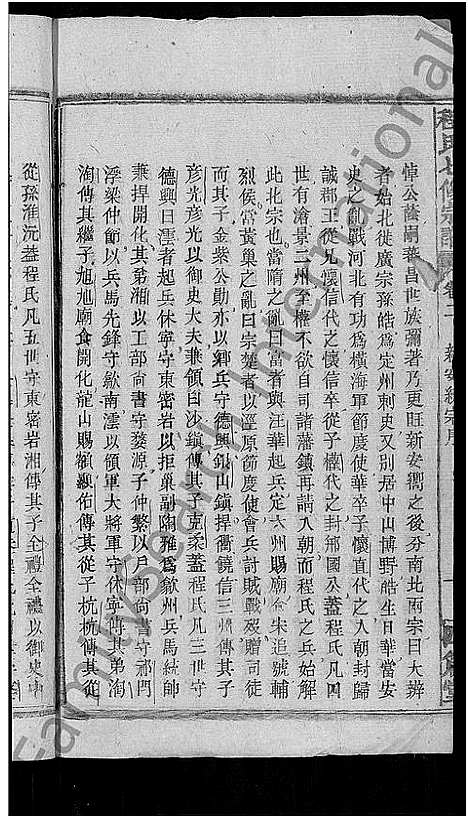 悼公蔭嗣蕃昌世族彌著乃更旺新安卿之後分南北兩宗曰大辨
者始北從廣宗孫皓爲定州刺史又別居中山博野皓生日華當安
史之亂戰河北有功爲橫海軍節度使華卒子懷直代之入朝封歸
誠郡王從兄懷信代之懷信卒從子權代之封邢國公蓋程氏凡四
世有滄景二州至權不欲自司諸藩鎮再請入朝而程氏之兵始解
此北宗也當隋之亂曰富者與汪華起兵定六州賜廟食宋追號輔
烈侯當黃巢之亂曰宗楚者以涇原節度使會兵討賊戰歿贈司徒
而其子金紫公勛亦以鄉兵守德興銀山鎮捍衢饒信三州傳其子
彦光彦光以御史大夫兼領白沙鎮傳其子克柔蓋程氏凡三世守
德興曰澐者起兵休寧守東密岩以拒巢副陶雅爲歙州兵馬統帥
兼捍開化其第湘以工部尚書守婺源子仲繁以戶部尚書守祁門
浮梁仲節以兵馬先鋒守歙南澐以領軍大將軍守休寧傳其弟淘
淘傳其繼子旭旭廟食開化龍山賜額顯佑傳其從子杭杭傳其從
從孫淮沅益程氏凡五世守東密岩湘傳其子全禮全禮以御史中
程氏七修宗譜
卷二
新安統宗序
一